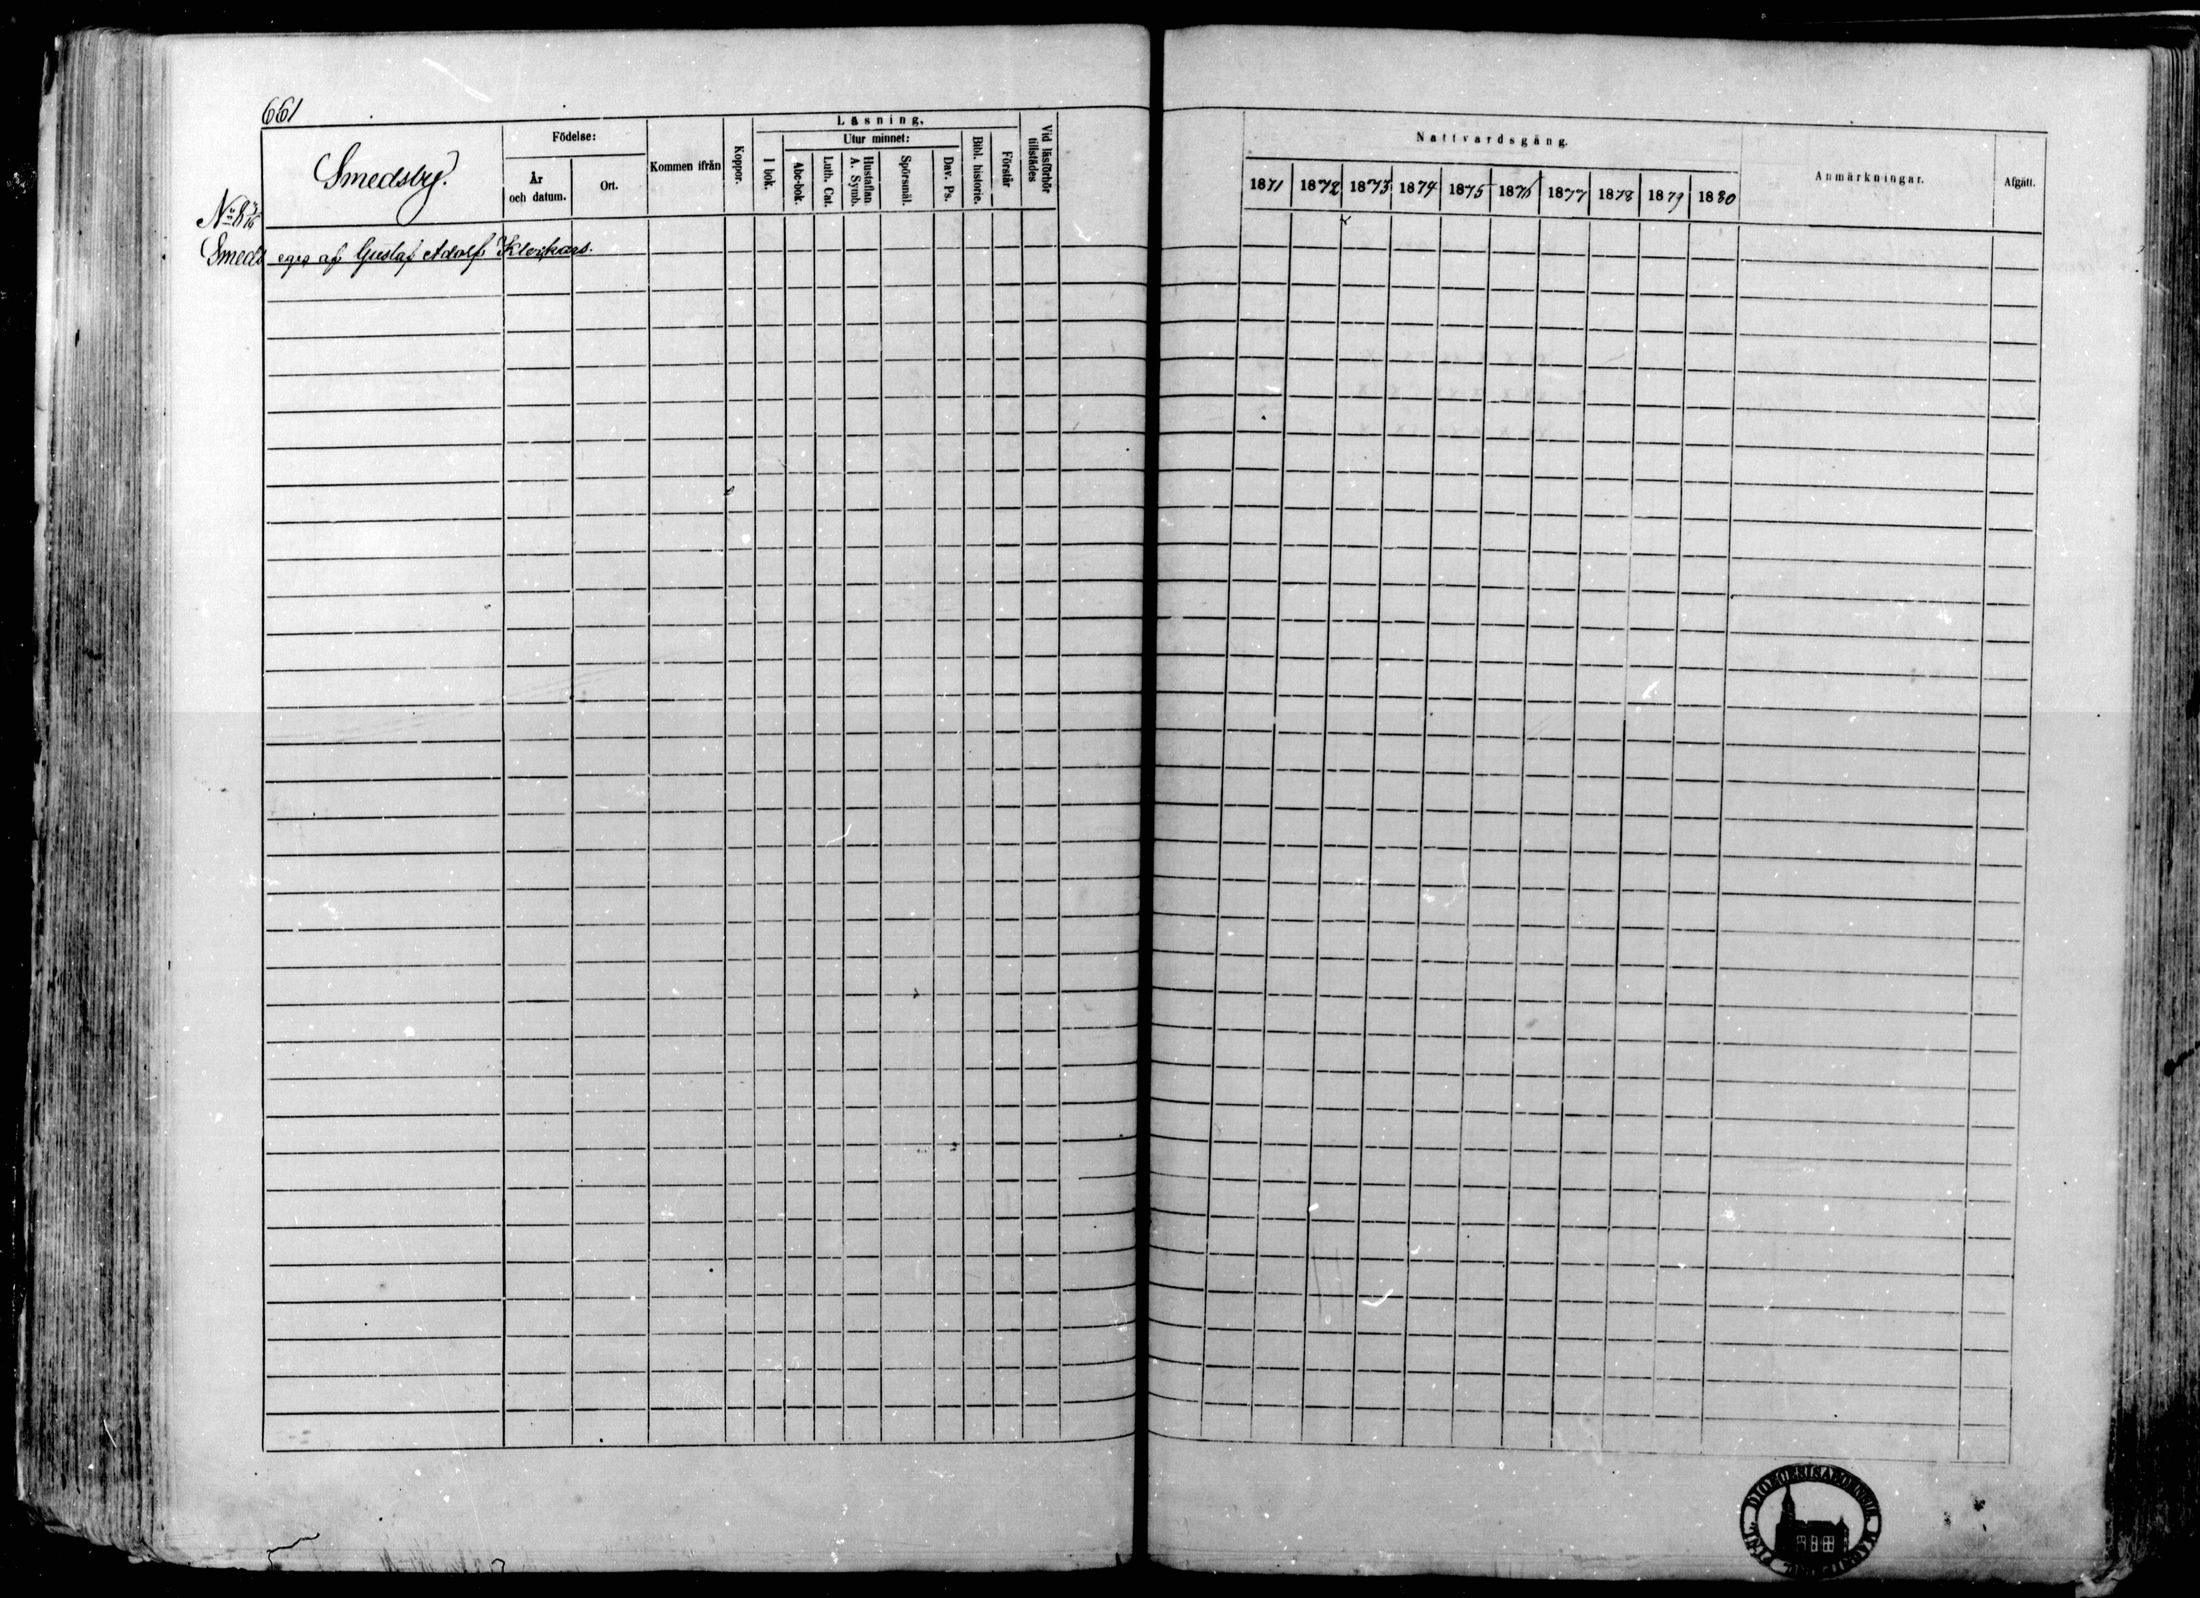 661
Smedsby.
Födelse:
År
och datum.
Ort.
Kommen ifrån
Koppor.
Läsning.
I bok.
Utur minnet:
Abc-bok.
Luth. Cat.
Hustaflan
A. Symb.
Spörsmål.
Dav. Ps.
Bibl. historie.
Förstår
Vid läsförhör
tillstädes
Nattvardsgång.
1871 1872 1873 1874 1875 1876 1877 1878 1879 1880
Anmärkningar.
Afgått.
No 8
Smeds eges af Gustaf Adolf Klockars.